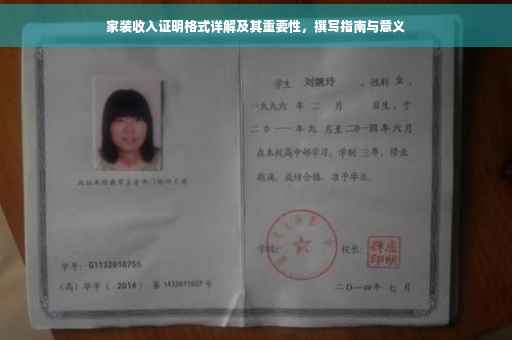 家装收入证明格式详解及其重要性，撰写指南与意义
学生 刘婉玲 ，性别 女 ，
一九九六 年 二 月 日生，于
二〇一一年九 月至二〇一四年六月
在本校高中部学习，学制 三年，修业
期满，成绩合格，准予毕业。
学校：
校长：
学号：G1132010755
（高）毕字（ 2014 ）第 1432011027 号
二〇一四年 七 月